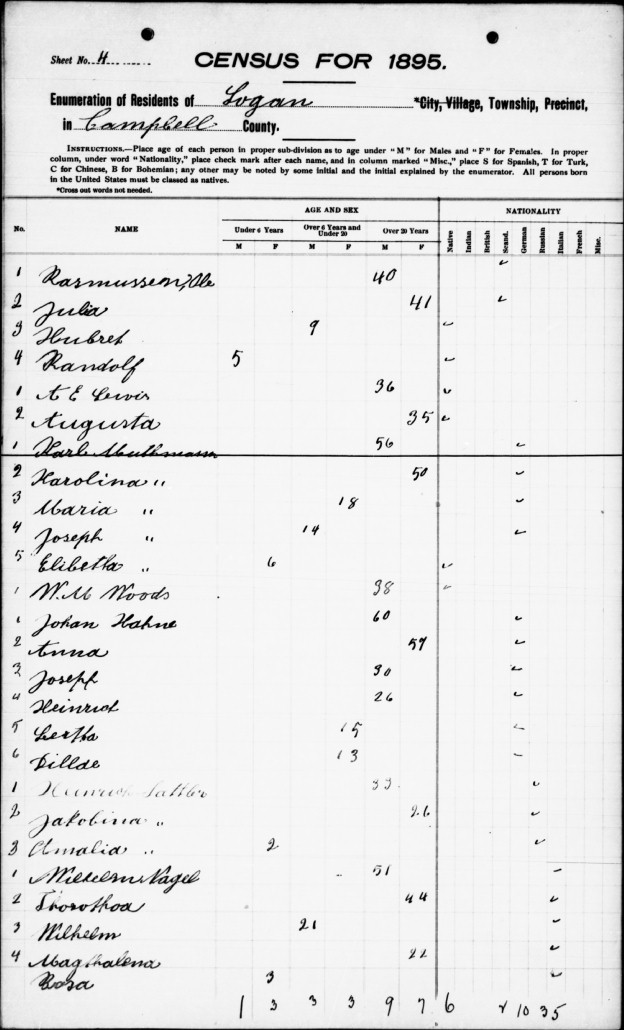 Sheet No. 4
CENSUS FOR 1895.
Enumeration of Residents of Logan *City, Village, Township, Precinct,
in Campbell County.
INSTRUCTIONS.—Place age of each person in proper sub-division as to age under "M" for Males and "F" for Females. In proper
column, under word "Nationality," place check mark after each name, and in column marked "Misc.," place S for Spanish, T for Turk,
C for Chinese, B for Bohemian; any other may be noted by some initial and the initial explained by the enumerator. All persons born
in the United States must be classed as natives.
*Cross out words not needed.
AGE AND SEX NATIONALITY
No. NAME Under 6 Years Over 6 Years and Under 20 Over 20 Years Native Indian British Scand. German Russian Italian French Misc.
M F M F M F
1 Rasmussen, Ole 40 ✓
2 Julia 41 ✓
3 Hubret 9 ✓
4 Randolf 5 ✓
1 A E Lewis 36 ✓
2 Augusta 35 ✓
1 Karl Muthmann 56 ✓
2 Karolina " 50 ✓
3 Maria " 18 ✓
4 Joseph " 14 ✓
5 Elibetha " 6 ✓
1 W. M Woods 38 ✓
1 Johan Hahne 60 ✓
2 Anna 57 ✓
3 Joseph 30 ✓
4 Heinrich 26 ✓
5 Bertha 15 ✓
6 13 ✓
1 Heinrich Sattler 33 ✓
2 Jakobina " 26 ✓
3 Amalia " 2 ✓
1 Wilhelm Nagel 51 ✓
2 Thorothea 44 ✓
3 Wilhelm 21 ✓
4 Magthalena 22 ✓
Rosa 3 ✓
1 3 3 3 9 7 6 2 10 3 5